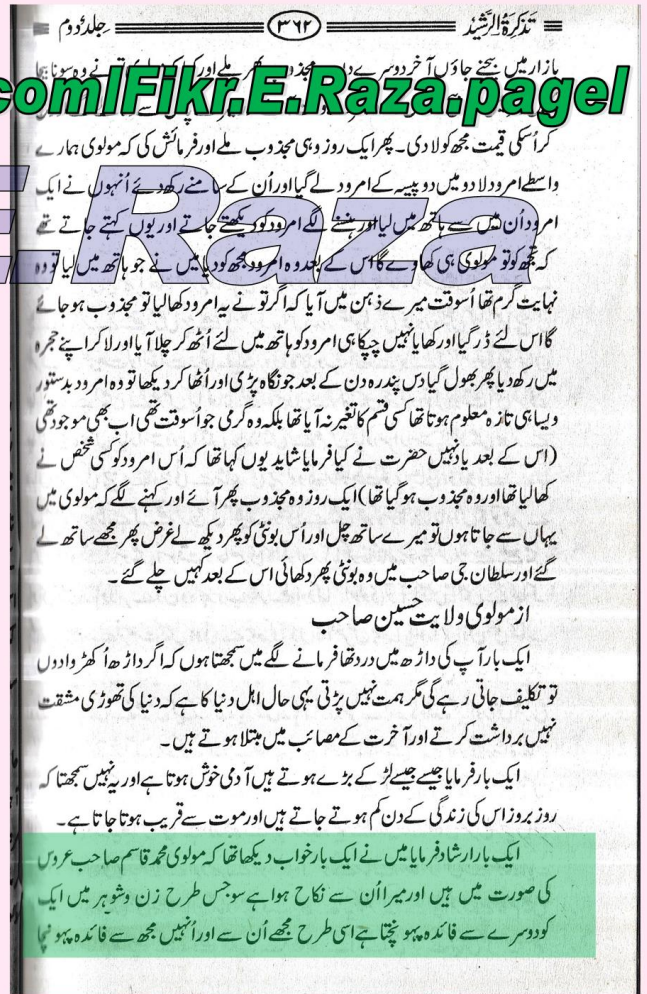 تذکرۃ الرشید ۳۶۲ جلد دوم
بازار میں بیچنے جاؤں آخر دوسرے
com/Fikr.E.Raza.page/
کر اُسکی قیمت مجھ کو لادی۔ پھر ایک روز وہی مجذوب ملے اور فرمائش کی کہ مولوی ہمارے
واسطے امرود لادو میں دو پیسہ کے امرود لے گیا اور اُن کے سامنے رکھدئے اُنہوں نے ایک
E.Raza
امرود اُن میں سے ہاتھ میں لیا اور ہنسنے لگے امرود کو دیکھتے جاتے اور یوں کہتے جاتے تھے
کہ تجھ کو تو مولوی ہی کھاوے گا اس کے بعد وہ امرود مجھ کو دیا میں نے جو ہاتھ میں لیا تو وہ
نہایت گرم تھا اُسوقت میرے ذہن میں آیا کہ اگر تو نے یہ امرود کھالیا تو مجذوب ہو جائے
گا اس لئے ڈر گیا اور کھایا نہیں چپکا ہی امرود کو ہاتھ میں لئے اُٹھ کر چلا آیا اور لاکر اپنے حجرہ
میں رکھ دیا پھر بھول گیا دس پندرہ دن کے بعد جو نگاہ پڑی اور اُٹھا کر دیکھا تو وہ امرود بدستور
ویسا ہی تازہ معلوم ہوتا تھا کسی قسم کا تغیر نہ آیا تھا بلکہ وہ گرمی جو اُسوقت تھی اب بھی موجود تھی
(اس کے بعد یاد نہیں حضرت نے کیا فرمایا شاید یوں کہا تھا کہ اُس امرود کو کسی شخص نے
کھالیا تھا اور وہ مجذوب ہو گیا تھا) ایک روز وہ مجذوب پھر آئے اور کہنے لگے کہ مولوی میں
یہاں سے جاتا ہوں تو میرے ساتھ چل اور اُس بوٹی کو پھر دیکھ لے غرض پھر مجھے ساتھ لے
گئے اور سلطان جی صاحب میں وہ بوٹی پھر دکھائی اس کے بعد کہیں چلے گئے۔
از مولوی ولایت حسین صاحب
ایک بار آپ کی داڑھ میں درد تھا فرمانے لگے میں سمجھتا ہوں کہ اگر داڑھ اُکھڑوادوں
تو تکلیف جاتی رہے گی مگر ہمت نہیں پڑتی یہی حال اہل دنیا کا ہے کہ دنیا کی تھوڑی مشقت
نہیں برداشت کرتے اور آخرت کے مصائب میں مبتلا ہوتے ہیں۔
ایک بار فرمایا جیسے جیسے لڑکے بڑے ہوتے ہیں آدمی خوش ہوتا ہے اور یہ نہیں سمجھتا کہ
روز بروز اس کی زندگی کے دن کم ہوتے جاتے ہیں اور موت سے قریب ہوتا جاتا ہے۔
ایک بار ارشاد فرمایا میں نے ایک بار خواب دیکھا تھا کہ مولوی محمد قاسم صاحب عروس
کی صورت میں ہیں اور میرا اُن سے نکاح ہوا ہے سو جس طرح زن و شوہر میں ایک
کو دوسرے سے فائدہ پہونچتا ہے اسی طرح مجھے اُن سے اور اُنہیں مجھ سے فائدہ پہونچا